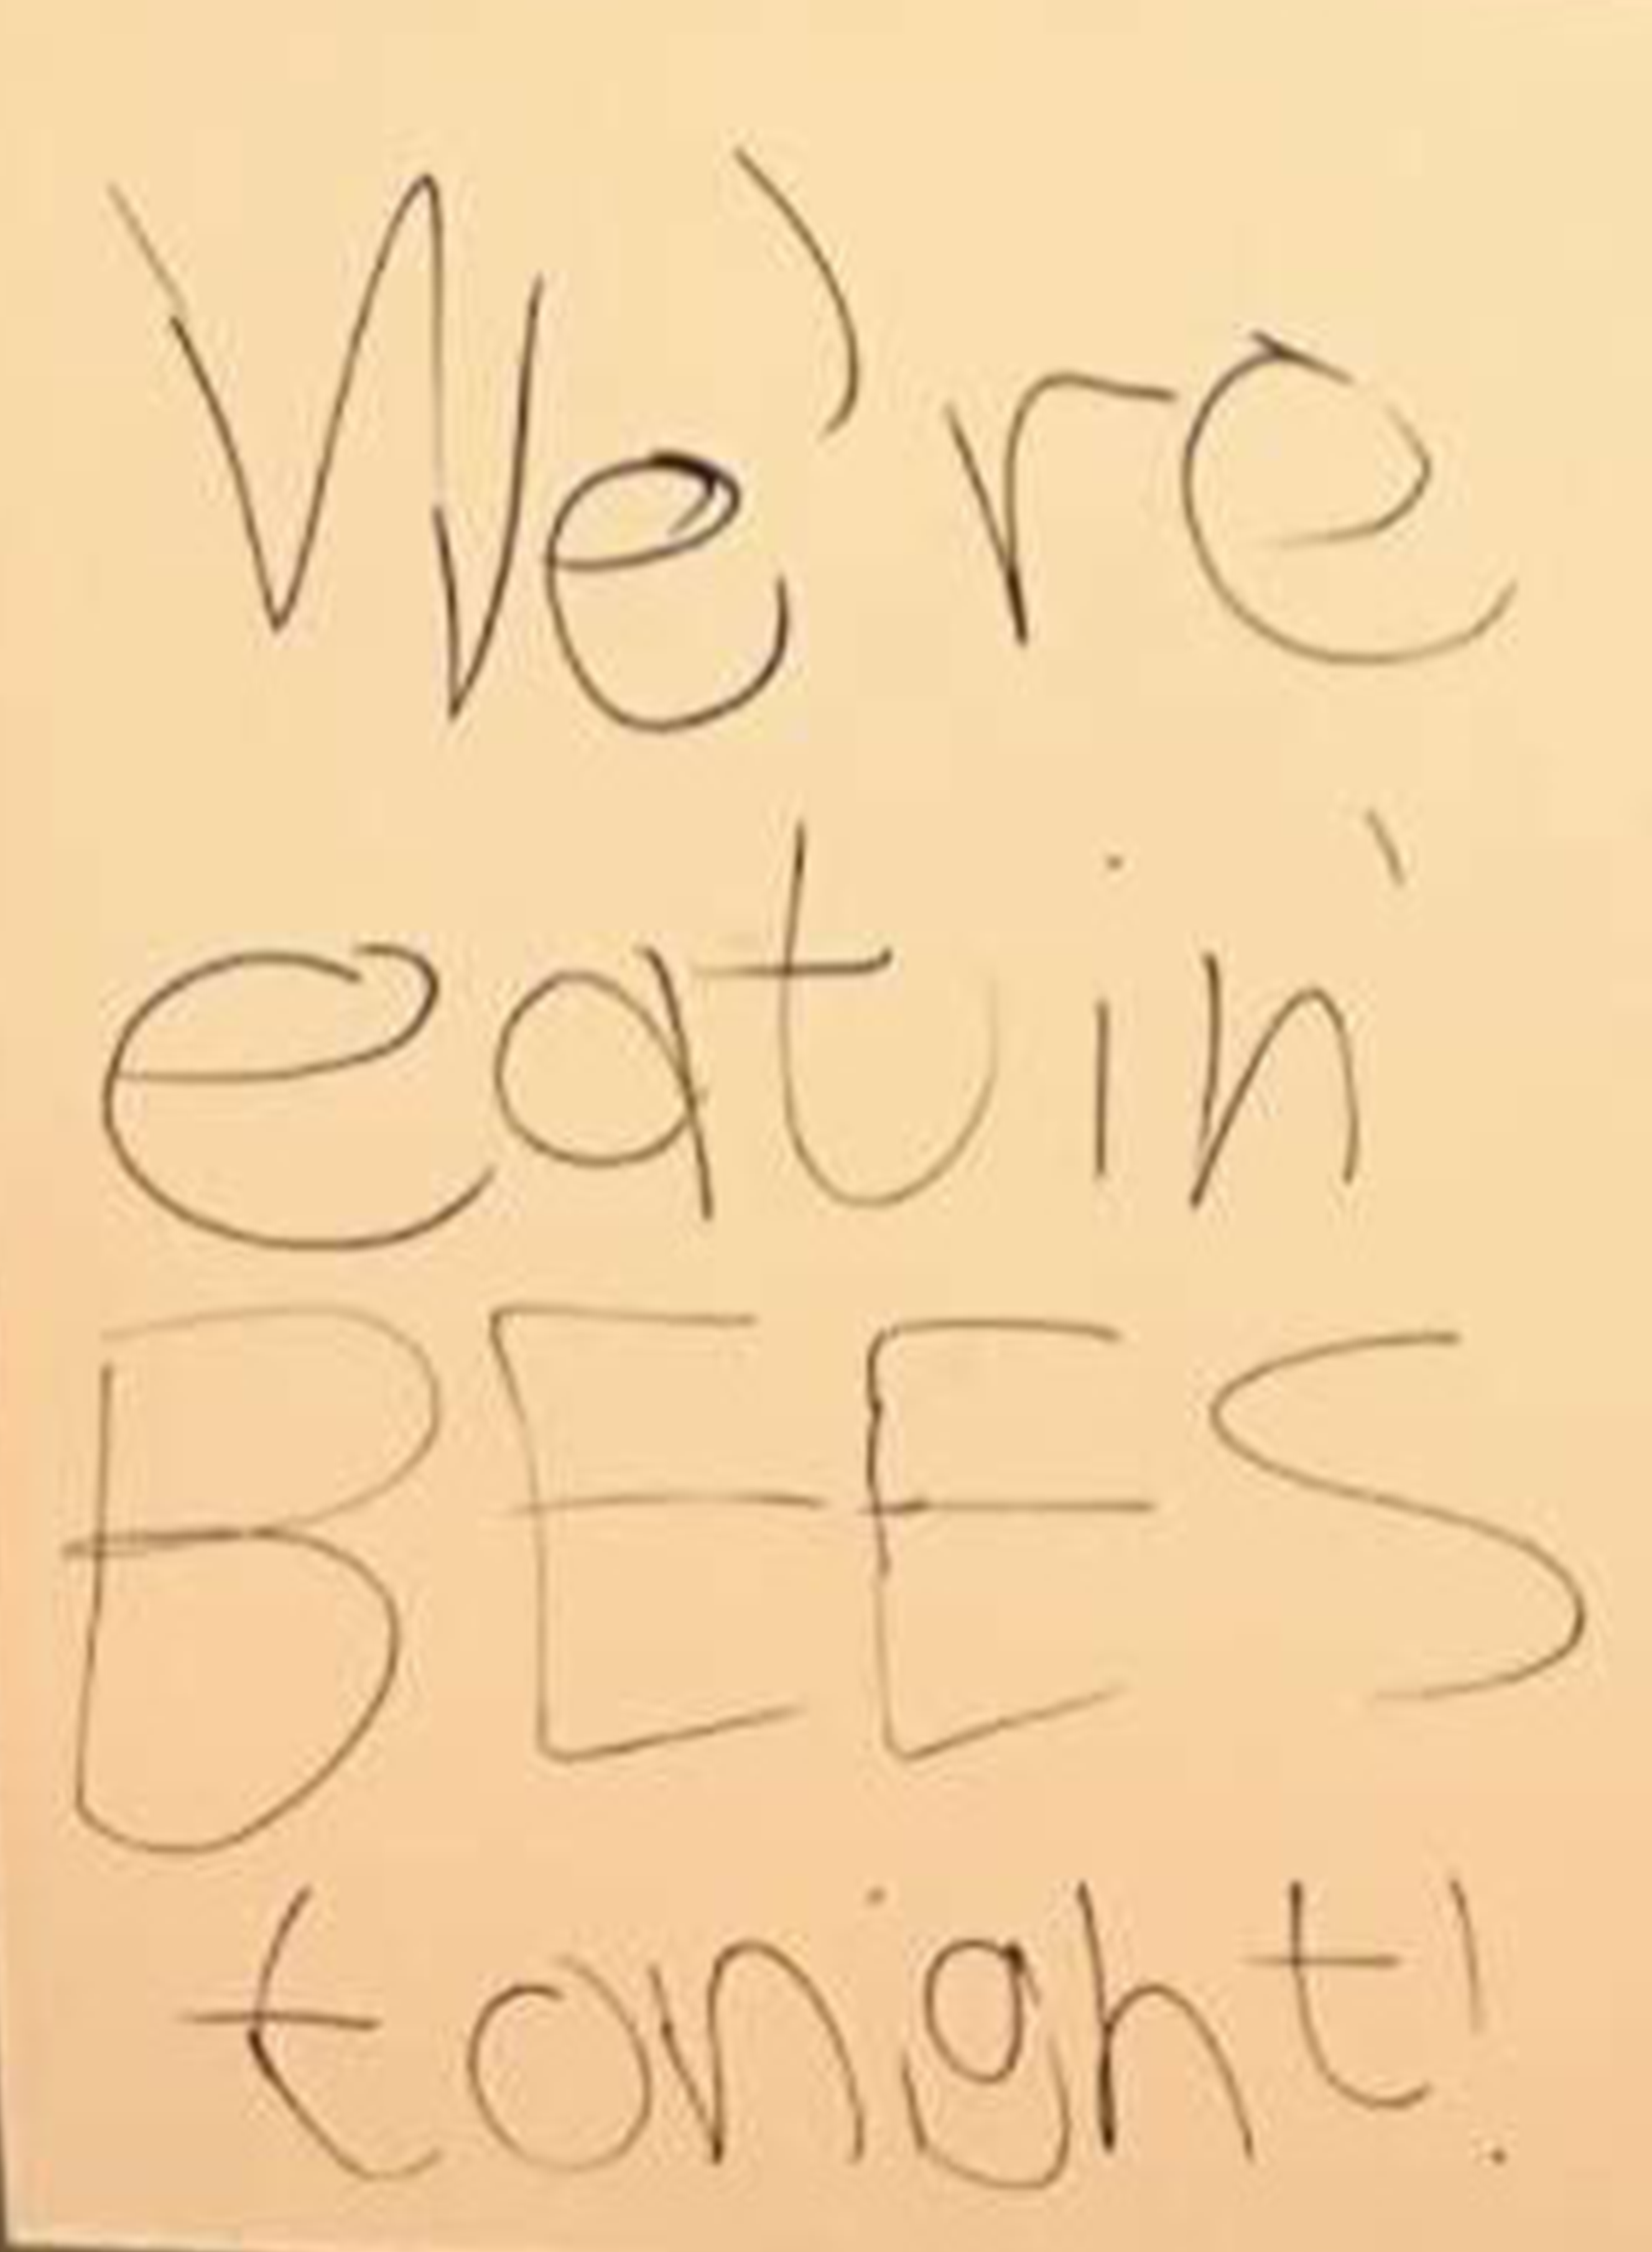 We're
eatin'
BEES
tonight!